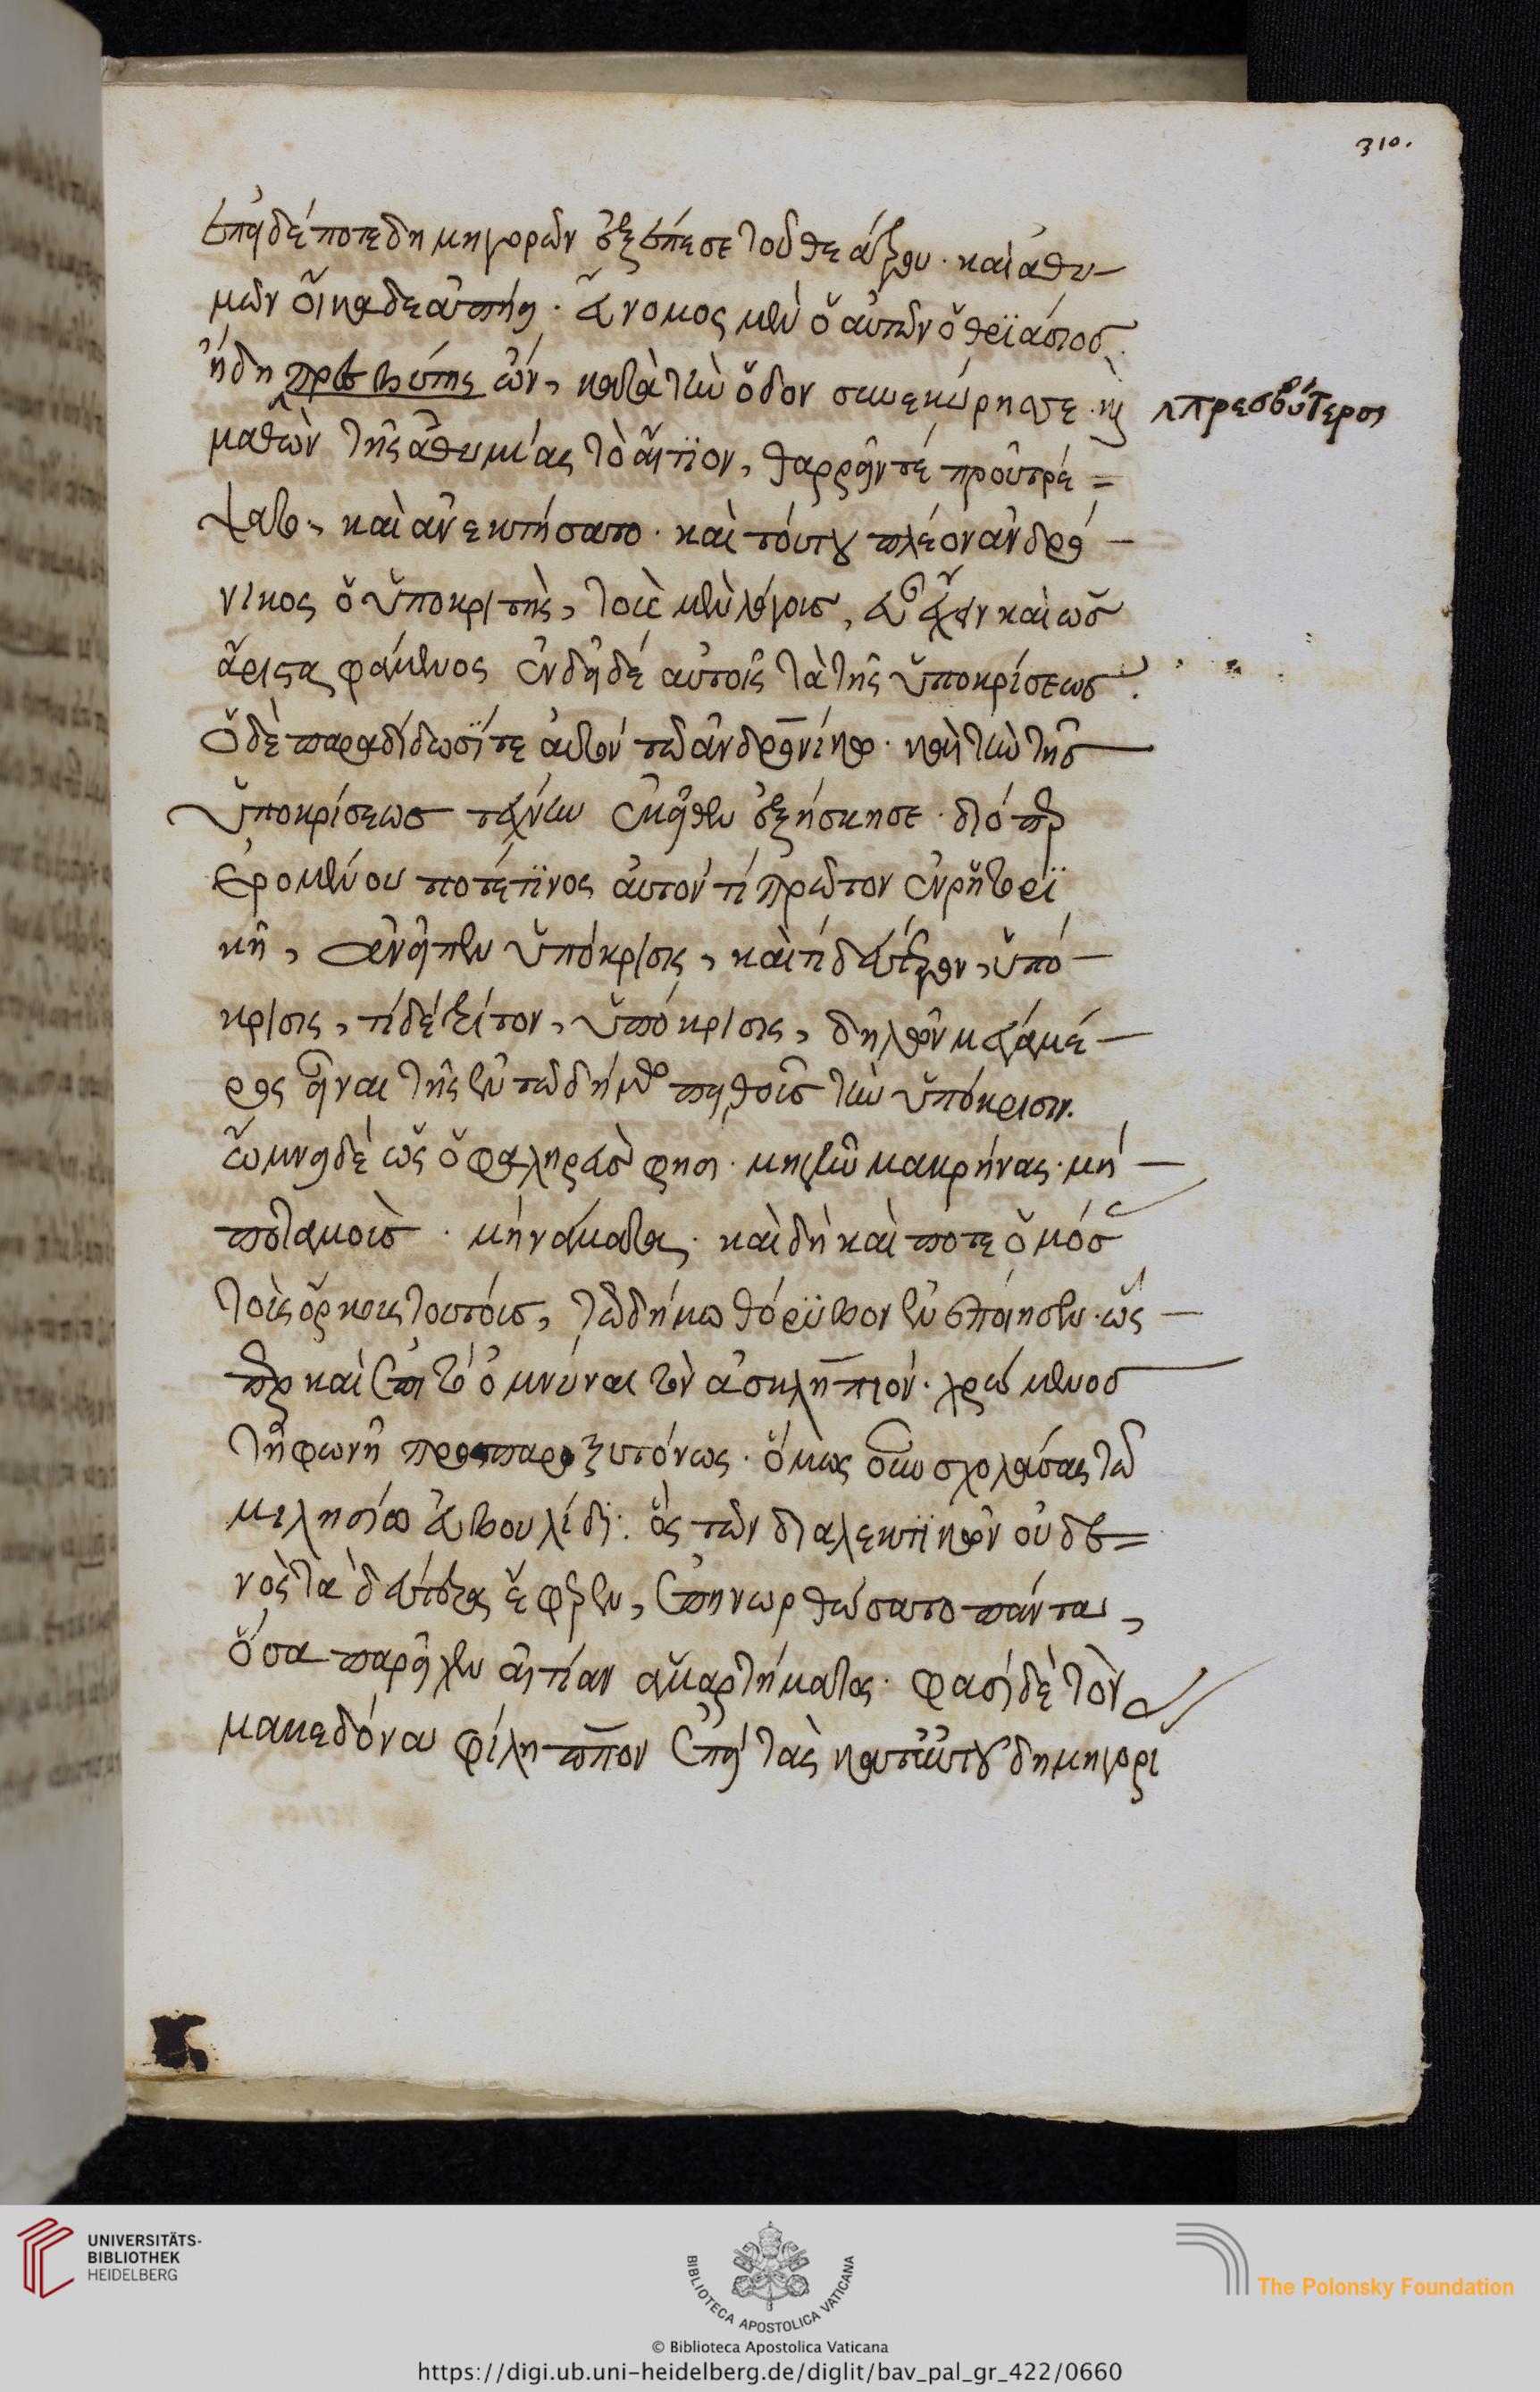 310.
ἐπεὶ δέ ποτε δημηγορῶν ἐξέπεσε τοῦ θεάτρου. καὶ ἀθυ-
μῶν οἴκαδε ἀπῄει. Εὔνομος μὲν ὁ αὐτῶν ὁ θριάσιος
ἤδη πρεσβύτης ὤν, κατὰ τὴν ὁδὸν συνεκύρησε. καὶ
πρεσβύτερος
μαθὼν τῆς ἀθυμίας τὸ αἴτιον, θαρρεῖν τέ προύτρέ=
ψατο, καὶ ἀνεκτήσατο. καὶ τούτου πλέον ἀνδρό-
νικος ὁ ὑποκριτὴς, τοὺς μὲν λόγοις, εὖ ἔχειν καὶ ὡς
ἄριστα φάμενος ἐνδεῖ δέ αὐτοῖς τὰ τῆς ὑποκρίσεως.
ὁ δὲ παραδίδωσί τε αὐτὸν τῶ ἀνδρονίκω. καὶ τὴν τῆς
ὑποκρίσεως τέχνην ἐκεῖθεν ἐξήσκησε. διόπερ
ἐρομένου ποτέ τινος αὐτόν τί πρῶτον ἐν ρητορι
κῆ, ἀνεῖπεν ὑπόκρισις, καὶ τί δεύτερον, ὑπό-
κρισις, τί δέ τρίτον, ὑπόκρισις, δηλῶν μέγα μέ-
ρος εἶναι τῆς ἐν τῶ δήμω πειθοῦς τὴν ὑπόκρισιν.
ὤμνυ δὲ ὡς ὁ φαληρεὺς φησι. μὴ γῆν μὴ κρήνας. μὴ-
ποταμοὺς. μὴ νάματα. καὶ δὴ καὶ ποτε ὀμόσ
τοὺς ὅρκους τουτοις, τῶ δήμω θόρυβον ἐνεποίησεν. ὥς-
περ καὶ ἐπὶ τῶ ὀμνύναι τὸν ἀσκλήπιον. χρώμενος
τῆ φωνῆ προπαροξυτόνως. ὅμως οὖν σχολάσας τῶ
μιλησίω εὐβουλίδη. ὃς τῶν διαλεκτικῶν οὐδε=
νὸς τὰ δεύτερα ἔφερεν, ἐπηνωρθώσατο πάντα,
ὅσα παρεῖχεν αἰτίαν ἁμαρτήματος. φασὶ δὲ τὸν
μακεδόνα φίλιππον ἐπεὶ τὰς κατ' αὐτοῦ δημηγορι
UNIVERSITÄTS-
BIBLIOTHEK
HEIDELBERG
BIBLIOTECA APOSTOLICA VATICANA
The Polonsky Foundation
© Biblioteca Apostolica Vaticana
https://digi.ub.uni-heidelberg.de/diglit/bav_pal_gr_422/0660